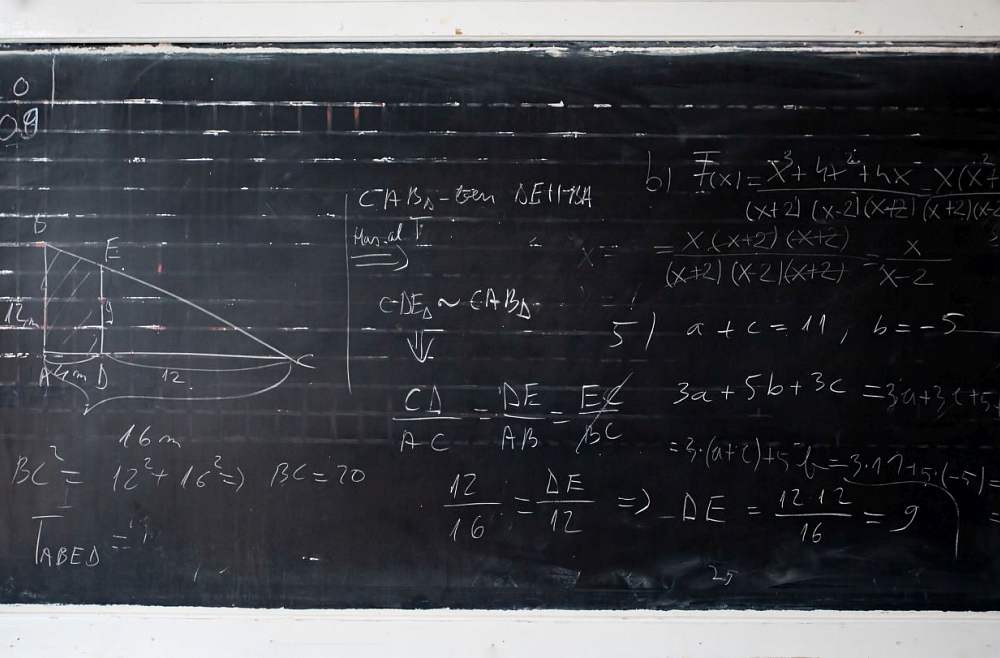 0
B
E
12m
9
A 4m D
12
C
16m
BC² = 12² + 16² => BC = 20
T_ABED =
CAB△ - ben DE || BA
=>
CDE△ ~ CAB△
⇓
CD/AC = DE/AB = EC/BC
12/16 = DE/12 => DE = 12·12/16 = 9
b) F(x) = x³ + 4x² + 4x / (x+2)(x-2)(x+2) = x(x² + / (x+2)(x-2
= x·(x+2)(x+2) / (x+2)(x-2)(x+2) = x / x-2
5) a + c = 11, b = -5
3a + 5b + 3c = 3a + 3c + 5
= 3·(a+c) + 5·b = 3·11 + 5·(-5) =
25